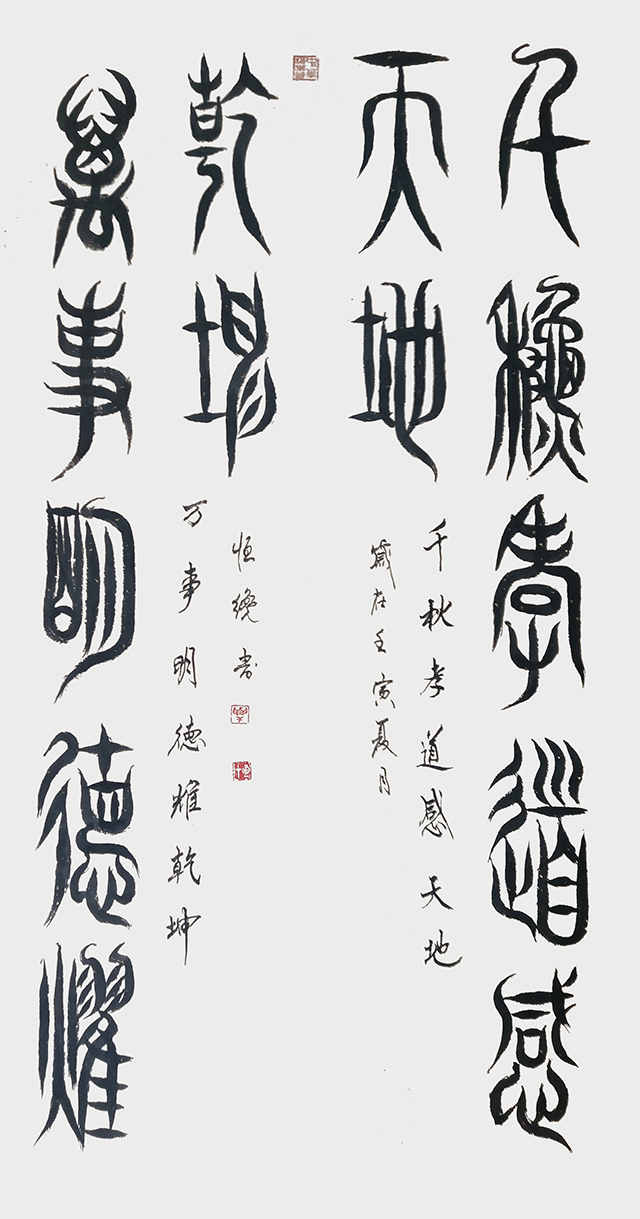 千秋孝道感
天地
千秋孝道感天地
歲在壬寅夏月
萬事明德燿
乾坤
万事明德耀乾坤
恒書